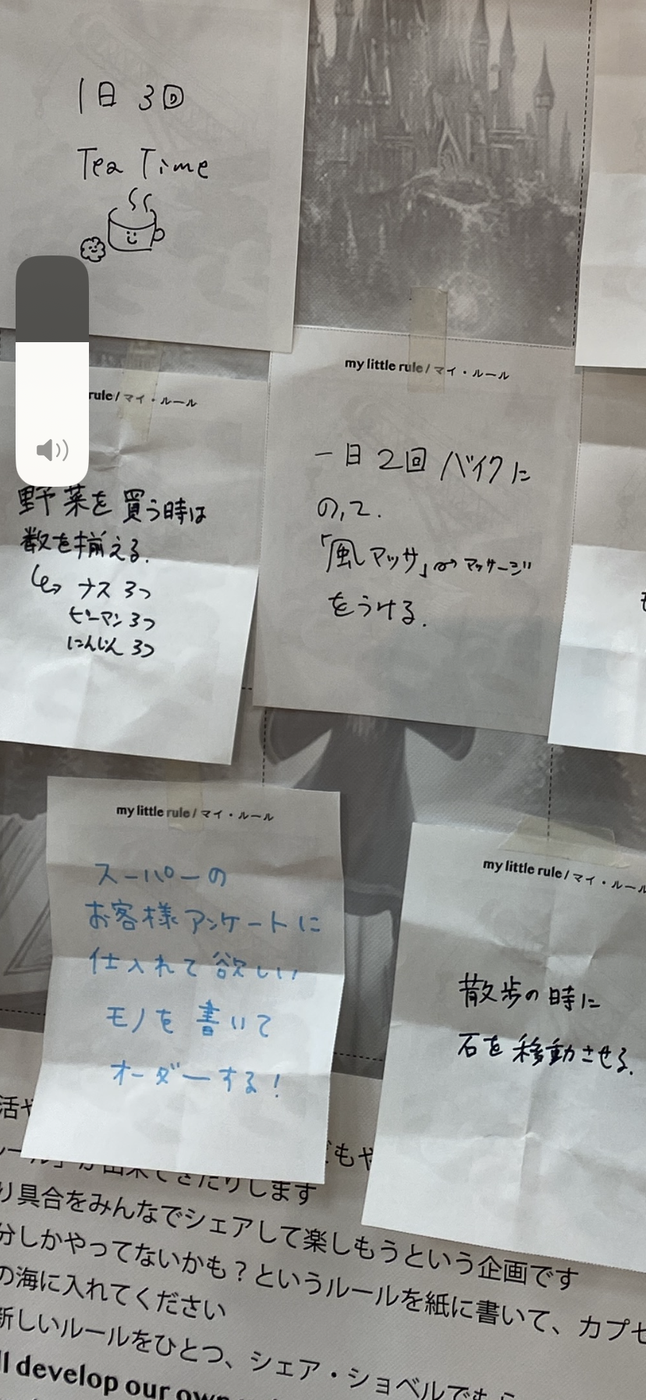 1日 3回
Tea Time
rule / マイ・ルール
野菜を買う時は
数を揃える.
ナス 3つ
ピーマン 3つ
にんじん 3つ
my little rule / マイ・ルール
一日2回 バイクに
のって.
「風マッサ」 マッサージ
をうける.
my little rule / マイ・ルール
スーパーの
お客様アンケートに
仕入れて欲しい
モノを書いて
オーダーする!
my little rule / マイ・ルール
散歩の時に
石を移動させる.
活や
どもや
ール」が出来てきたりします
り具合をみんなでシェアして楽しもうという企画です
分しかやってないかも?というルールを紙に書いて、カプセ
の海に入れてください
新しいルールをひとつ、シェア・ショベルで
ll develop our own